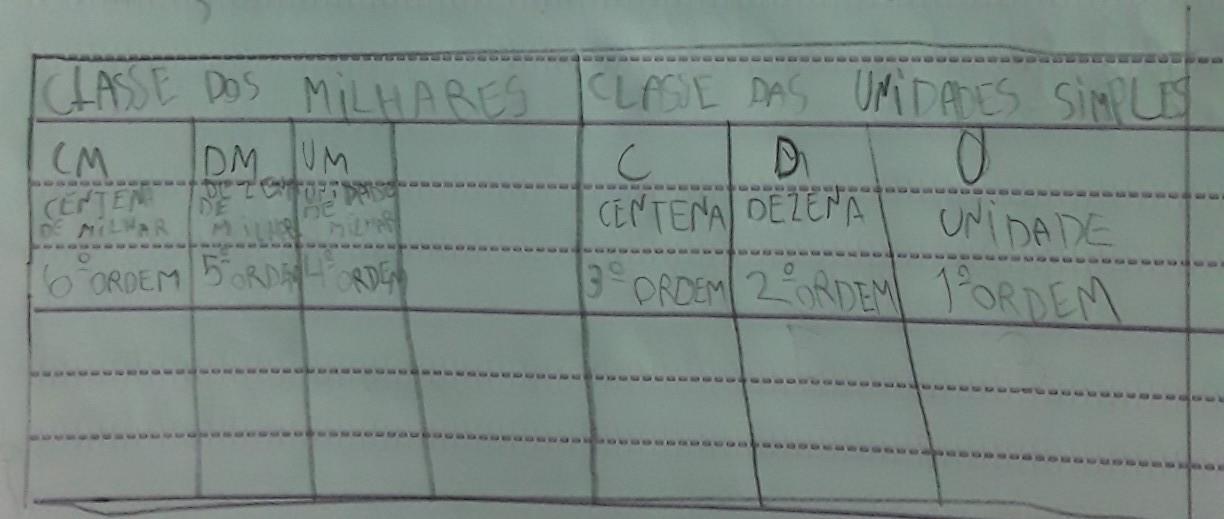 CLASSE DOS MILHARES CLASSE DAS UNIDADES SIMPLES
CM DM UM C D U
CENTENA DE MILHAR DEZENA DE MILHAR UNIDADE DE MILHAR CENTENA DEZENA UNIDADE
6º ORDEM 5º ORDEM 4º ORDEM 3º ORDEM 2º ORDEM 1º ORDEM